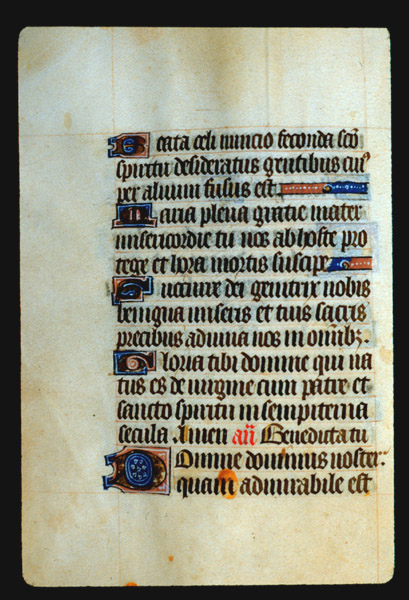 Beata celi nuncio feconda sco
spiritu desideratus gentibus cui9
per aluum fusus est.
Maria plena gratie mater
misericordie tu nos ab hoste pro
tege et hora mortis suscipe
Succurre dei genitrix nobis
benigna miseris et tuis sacris
precibus adiuua nos in omibz.
Gloria tibi domine qui na
tus es de uirgine cum patre et
sancto spiritu in sempiterna
secula. Amen añ Benedicta tu
Domine dominus noster:
quam admirabile est